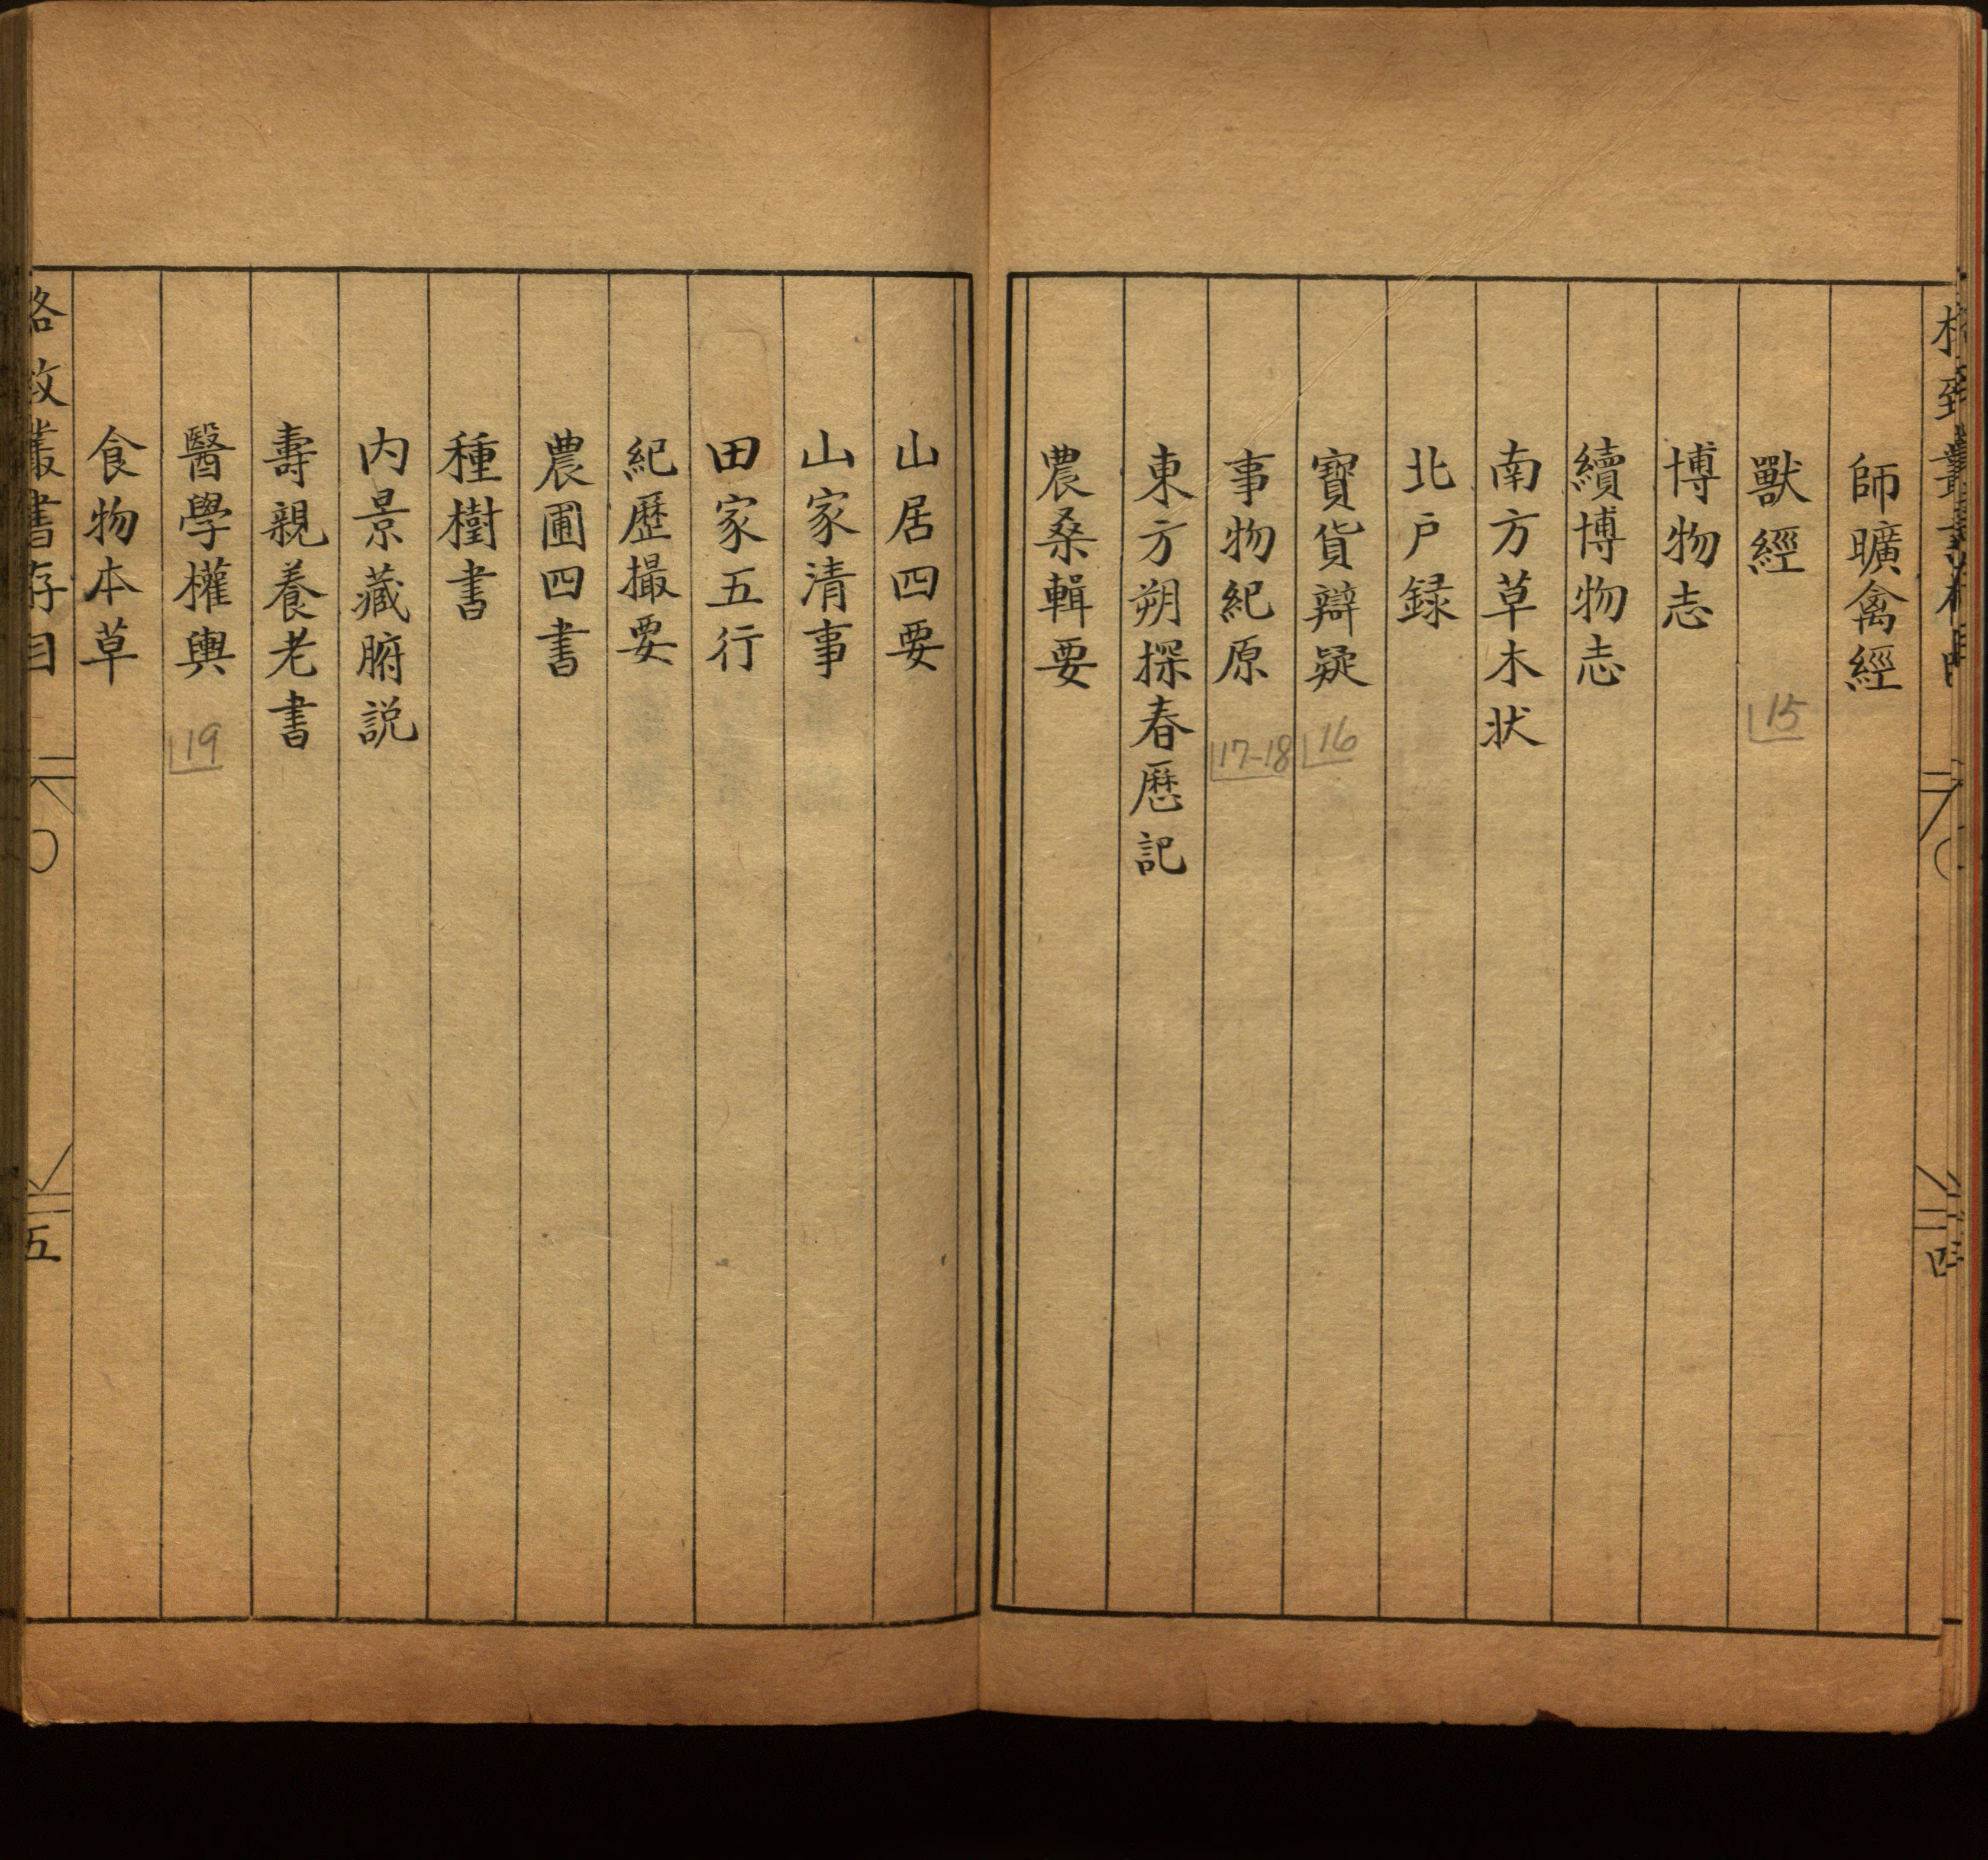 師曠禽經
獸經
15
博物志
續博物志
南方草木状
北戶録
寶貨辯疑
16
事物紀原
17-18
東方朔探春歷記
農桑輯要
山居四要
山家清事
田家五行
紀歷撮要
農圃四書
種樹書
内景藏腑説
壽親養老書
醫學權輿
19
食物本草
格致叢書存目
五